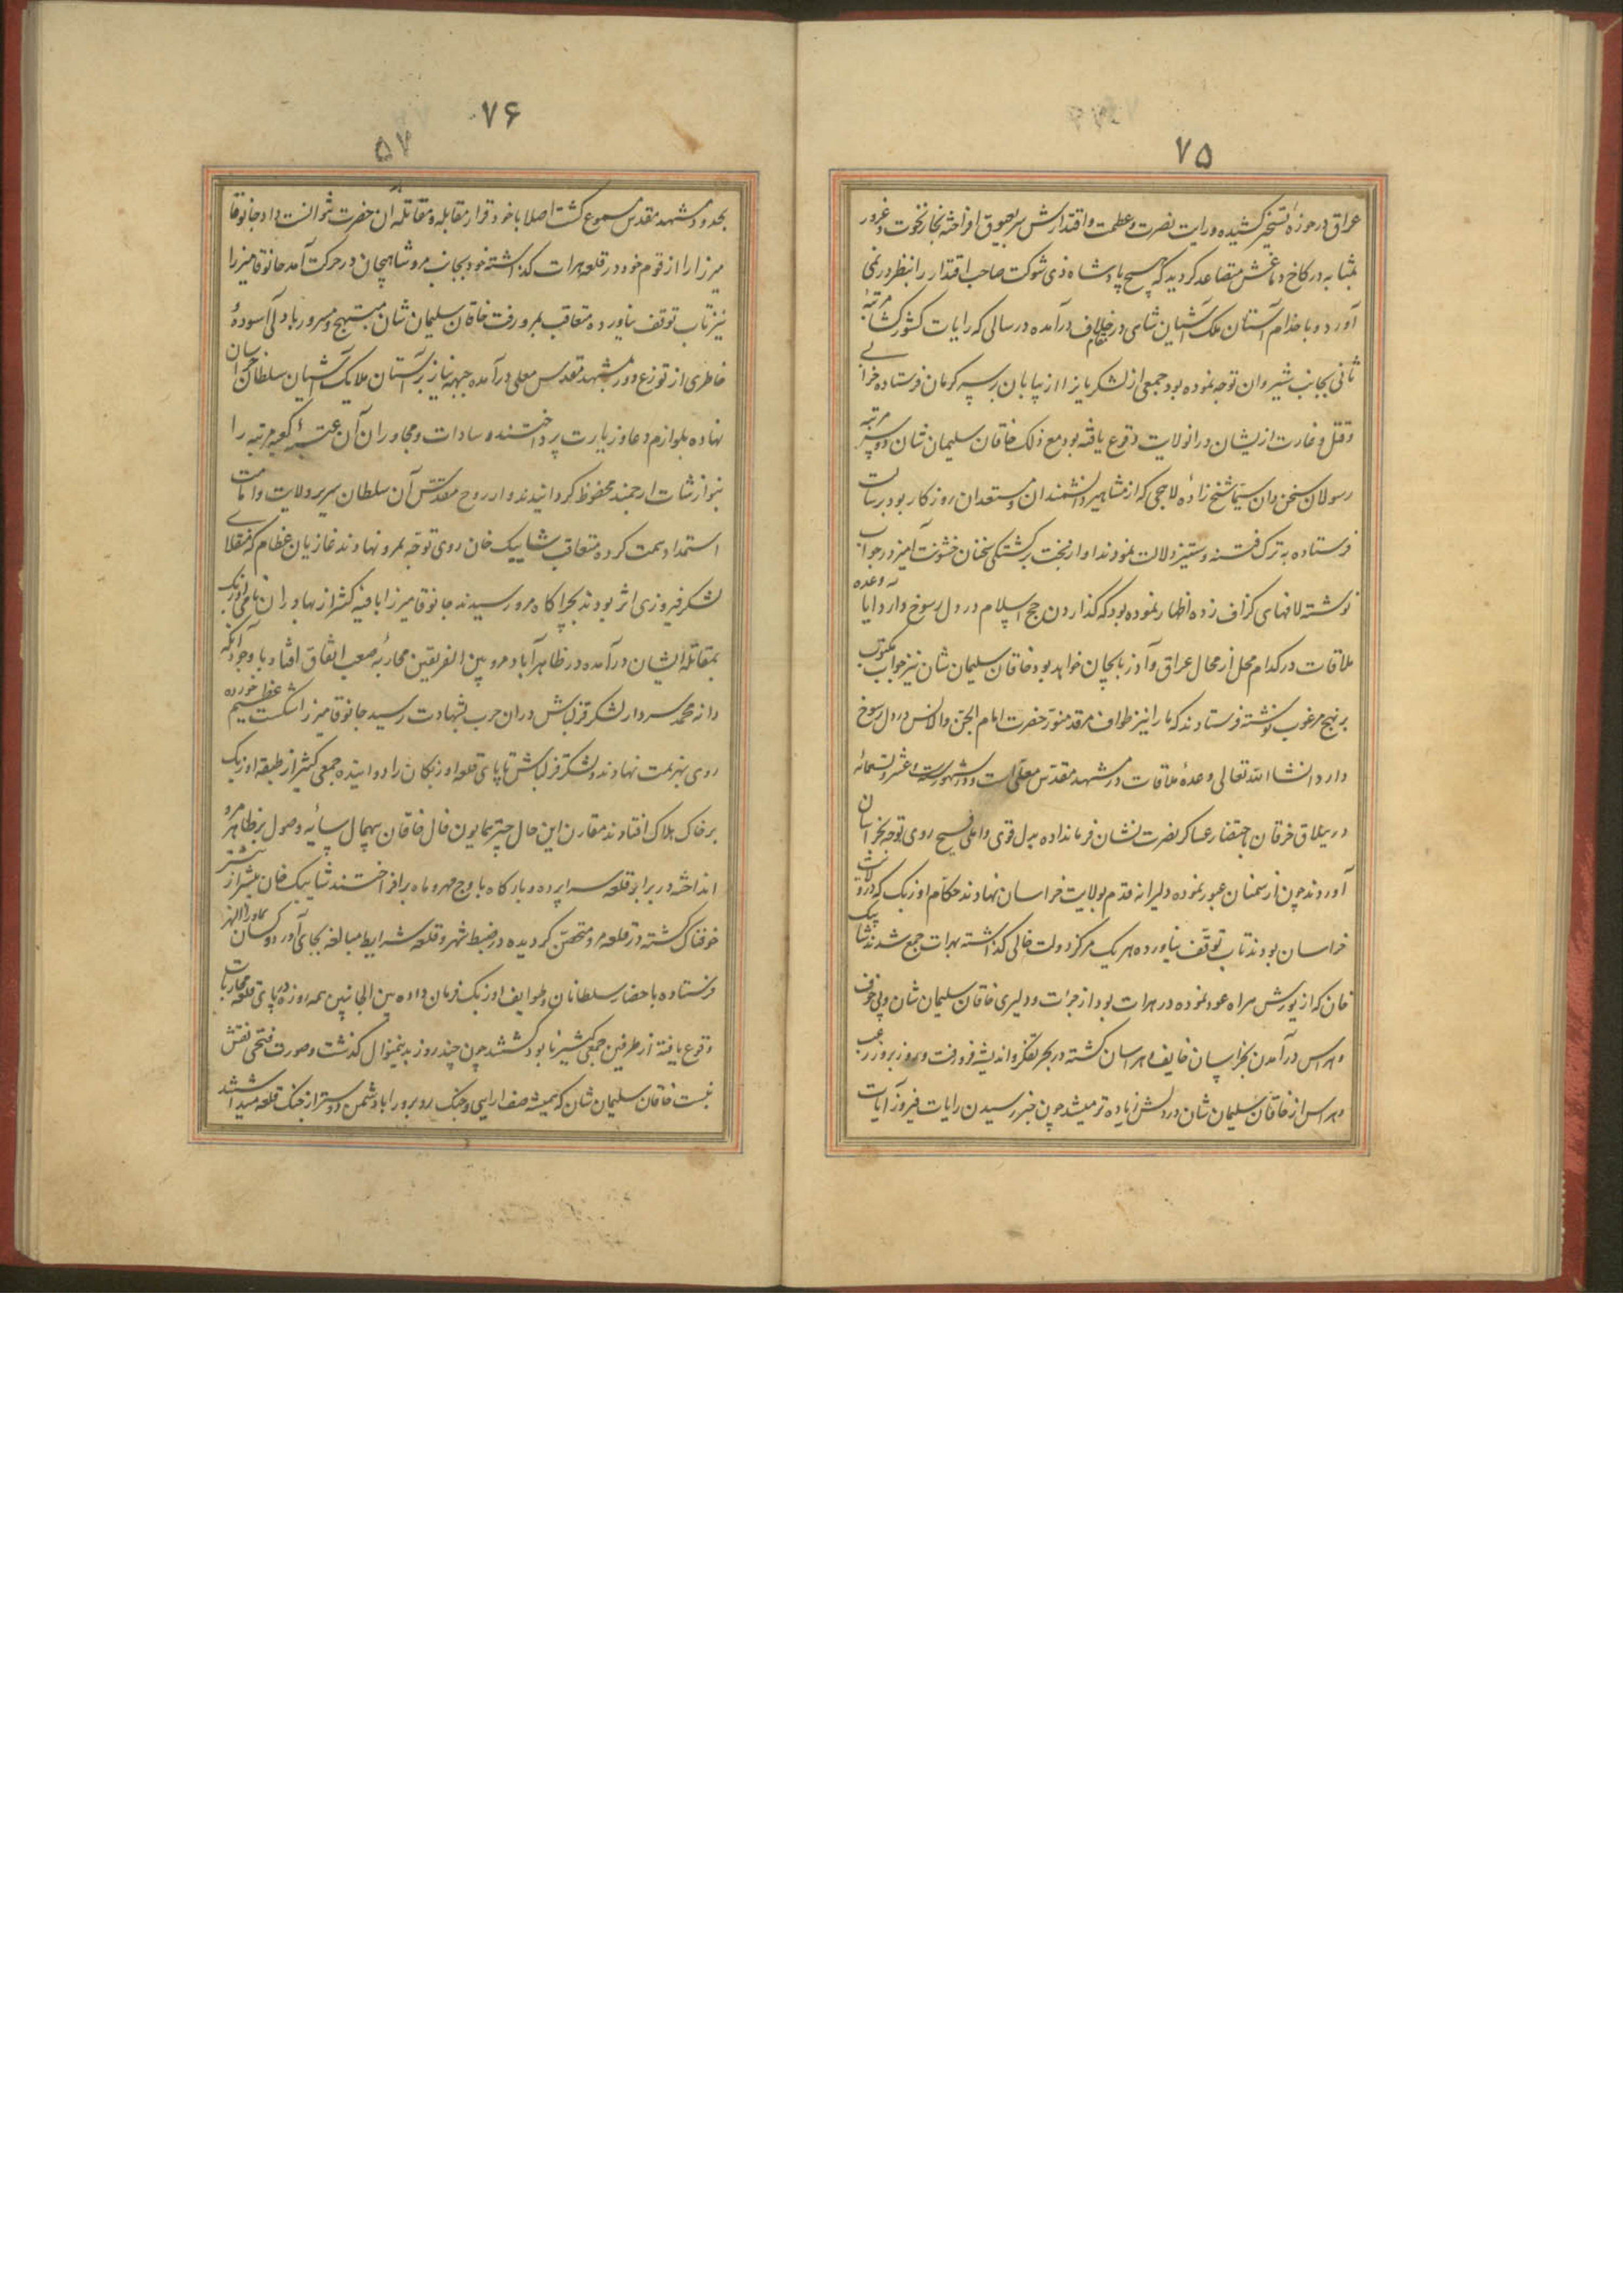 ۷۵
عراق در حوزه تسخیر کشیده و رایت نصرت و عظمت و اقتدارش سر بعیوق افراخته بخار نخوت و غرور
بمثابه در کاخ دماغش متصاعد گردید که هیچ پادشاه ذی شوکت صاحب اقتدار را بنظر در نمی
آورد و با خدام آستان ملک آشیان شاهی در مقام خلاف درآمده در سالی که رایات کشورگشا مرتبهٔ
ثانی بجانب شیروان توجه نموده بود جمعی از لشکریان را از بیابان بر سر کرمان فرستاده خرابی
و قتل و غارت ازیشان در انولایت وقوع یافته بود مع ذلک خاقان سلیمان شان دو مرتبه
رسولان سخن دان سیما شیخ زاده لاهجی که از مشاهیر دانشمندان و مستعدان روزکار بود برسالت
فرستاده به ترک فتنه و ستیز دلالت نمودند او از بخت برگشتگی سخنان خشونت آمیز در جواب
نوشته لافهای گزاف زده اظهار نموده بود که گذاردن حج اسلام در دل رسوخ دارد آیا وعده
ملاقات در کدام محل از محال عراق و آذربایجان خواهد بود خاقان سلیمان شان نیز جواب مکتوب
بر نهج مرغوب نوشته فرستادند که ما را نیز طواف مرقد منور حضرت امام الجن و الانس در دل رسوخ
دارد انشاالله تعالی وعدهٔ ملاقات در مشهد مقدس معلی است و در شهور سنه عشر و تسعمائه
در ییلاق خرقان باحضار عساکر نصرت نشان فرمان داده بدل قوی و املی فسیح روی توجه بخراسان
آوردند چون از سمنان عبور نموده دلیرانه قدم بولایت خراسان نهادند حکام اوزبک که در ولایت
خراسان بودند تاب توقف نیاورده هر یک مرکز دولت خالی گذاشته بهرات جمع شدند شاهی بیک
خان که از یورش هزاره عود نموده در هرات بود از جرات و دلیری خاقان سلیمان شان و بی خوف
و هراس درآمدن بخراسان خایف و هراسان گشته در بحر تفکر و اندیشه فرو رفت و روز بروز رعب
و هراس از خاقان سلیمان شان در دلش زیاده تر میشد چون خبر رسیدن رایات فیروز آیات
۷۶
۵۷
بحدود مشهد مقدس مسموع گشت اصلا با خود قرار مقابله و مقاتله آن حضرت نتوانست داد جانوقا
میرزا را از قوم خود در قلعه هرات گذاشته خود بجانب مرو شاهیجان در حرکت آمد جانوقا میرزا
نیز تاب توقف نیاورده متعاقب بمرو رفت خاقان سلیمان شان مبتهج و مسرور با دلی آسوده
خاطری از توزع دور بمشهد مقدس معلی درآمده جبهه نیاز بر آستان ملایک آشیان سلطان خراسان
نهاده بلوازم دعا و زیارت پرداختند و سادات و مجاوران آن عتبهٔ کعبه مرتبه را
بنوازشات ارجمند محفوظ گردانیدند و از روح مقدس آن سلطان سریر ولایت و امامت
استمداد همت کرده متعاقب شاهی بیک خان روی توجه بمرو نهادند غازیان عظام که منقلای
لشکر فیروزی اثر بودند بچراگاه مرو رسیدند جانوقا میرزا با فئه کثیر از بهادران نامی اوزبک
بمقاتله ایشان درآمده در ظاهر آباد مرو بین الفریقین محاربه صعب اتفاق افتاد با وجود آنکه
دانه محمد سردار لشکر قزلباش در ان حرب بشهادت رسید جانوقا میرزا شکست عظیم خورده
روی بهزیمت نهادند و لشکر قزلباش تا پای قلعه اوزبکان را دوانیده جمعی کثیر از طبقه اوزبک
بر خاک هلاک افتادند مقارن این حال چتر همایون فال خاقان بیهمال سایه وصول بر ظاهر مرو
انداخته در برابر قلعه سراپرده و بارگاه باوج مهر و ماه برافراختند شاهی بیک خان بیشتر از پیشتر
خوفناک گشته در قلعه مرو متحصن گردیده در ضبط شهر و قلعه شرایط مبالغه بجای آورد و کسان بماوراالنهر
فرستاده باحضار سلطانان و طوایف اوزبک فرمان داده بین الجانبین همه روزه در پای قلعه محاربات
وقوع یافته از طرفین جمعی کثیر نابود گشتند چون چند روز بدینمنوال گذشت و صورت فتحی نقش
نبست خاقان سلیمان شان که همیشه صف ارایی و جنگ روبرو را با دشمن دوستر از جنگ قلعه میداشتند